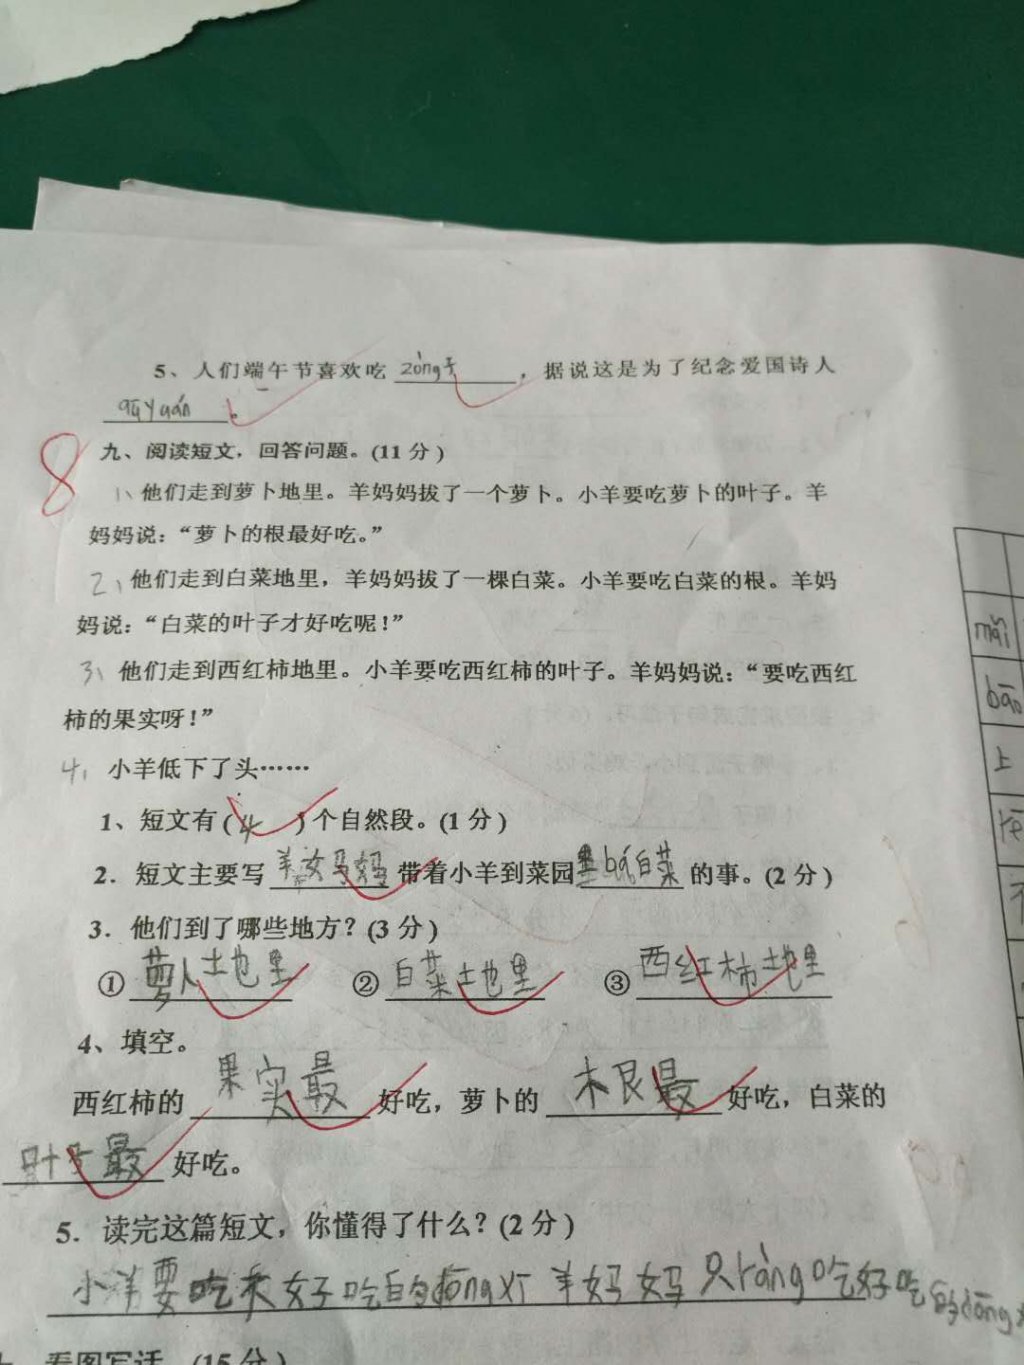 5、人们端午节喜欢吃 zòng子，据说这是为了纪念爱国诗人
qūyuán。
8
九、阅读短文，回答问题。(11分)
1、他们走到萝卜地里。羊妈妈拔了一个萝卜。小羊要吃萝卜的叶子。羊
妈妈说：“萝卜的根最好吃。”
2、他们走到白菜地里，羊妈妈拔了一棵白菜。小羊要吃白菜的根。羊妈
妈说：“白菜的叶子才好吃呢！”
3、他们走到西红柿地里。小羊要吃西红柿的叶子。羊妈妈说：“要吃西红
柿的果实呀！”
4、小羊低下了头……
1、短文有(4)个自然段。(1分)
2．短文主要写 羊妈妈 带着小羊到菜园里bá白菜 的事。(2分)
3．他们到了哪些地方？(3分)
① 萝卜地里 ② 白菜土地里 ③ 西红柿地里
4、填空。
西红柿的 果实最 好吃，萝卜的 根最 好吃，白菜的
叶子最 好吃。
5．读完这篇短文，你懂得了什么？(2分)
小羊要吃不好吃的dōngxī羊妈妈只ràng吃好吃的dōng
看图写话。(15分)
mǎi
bāo
上